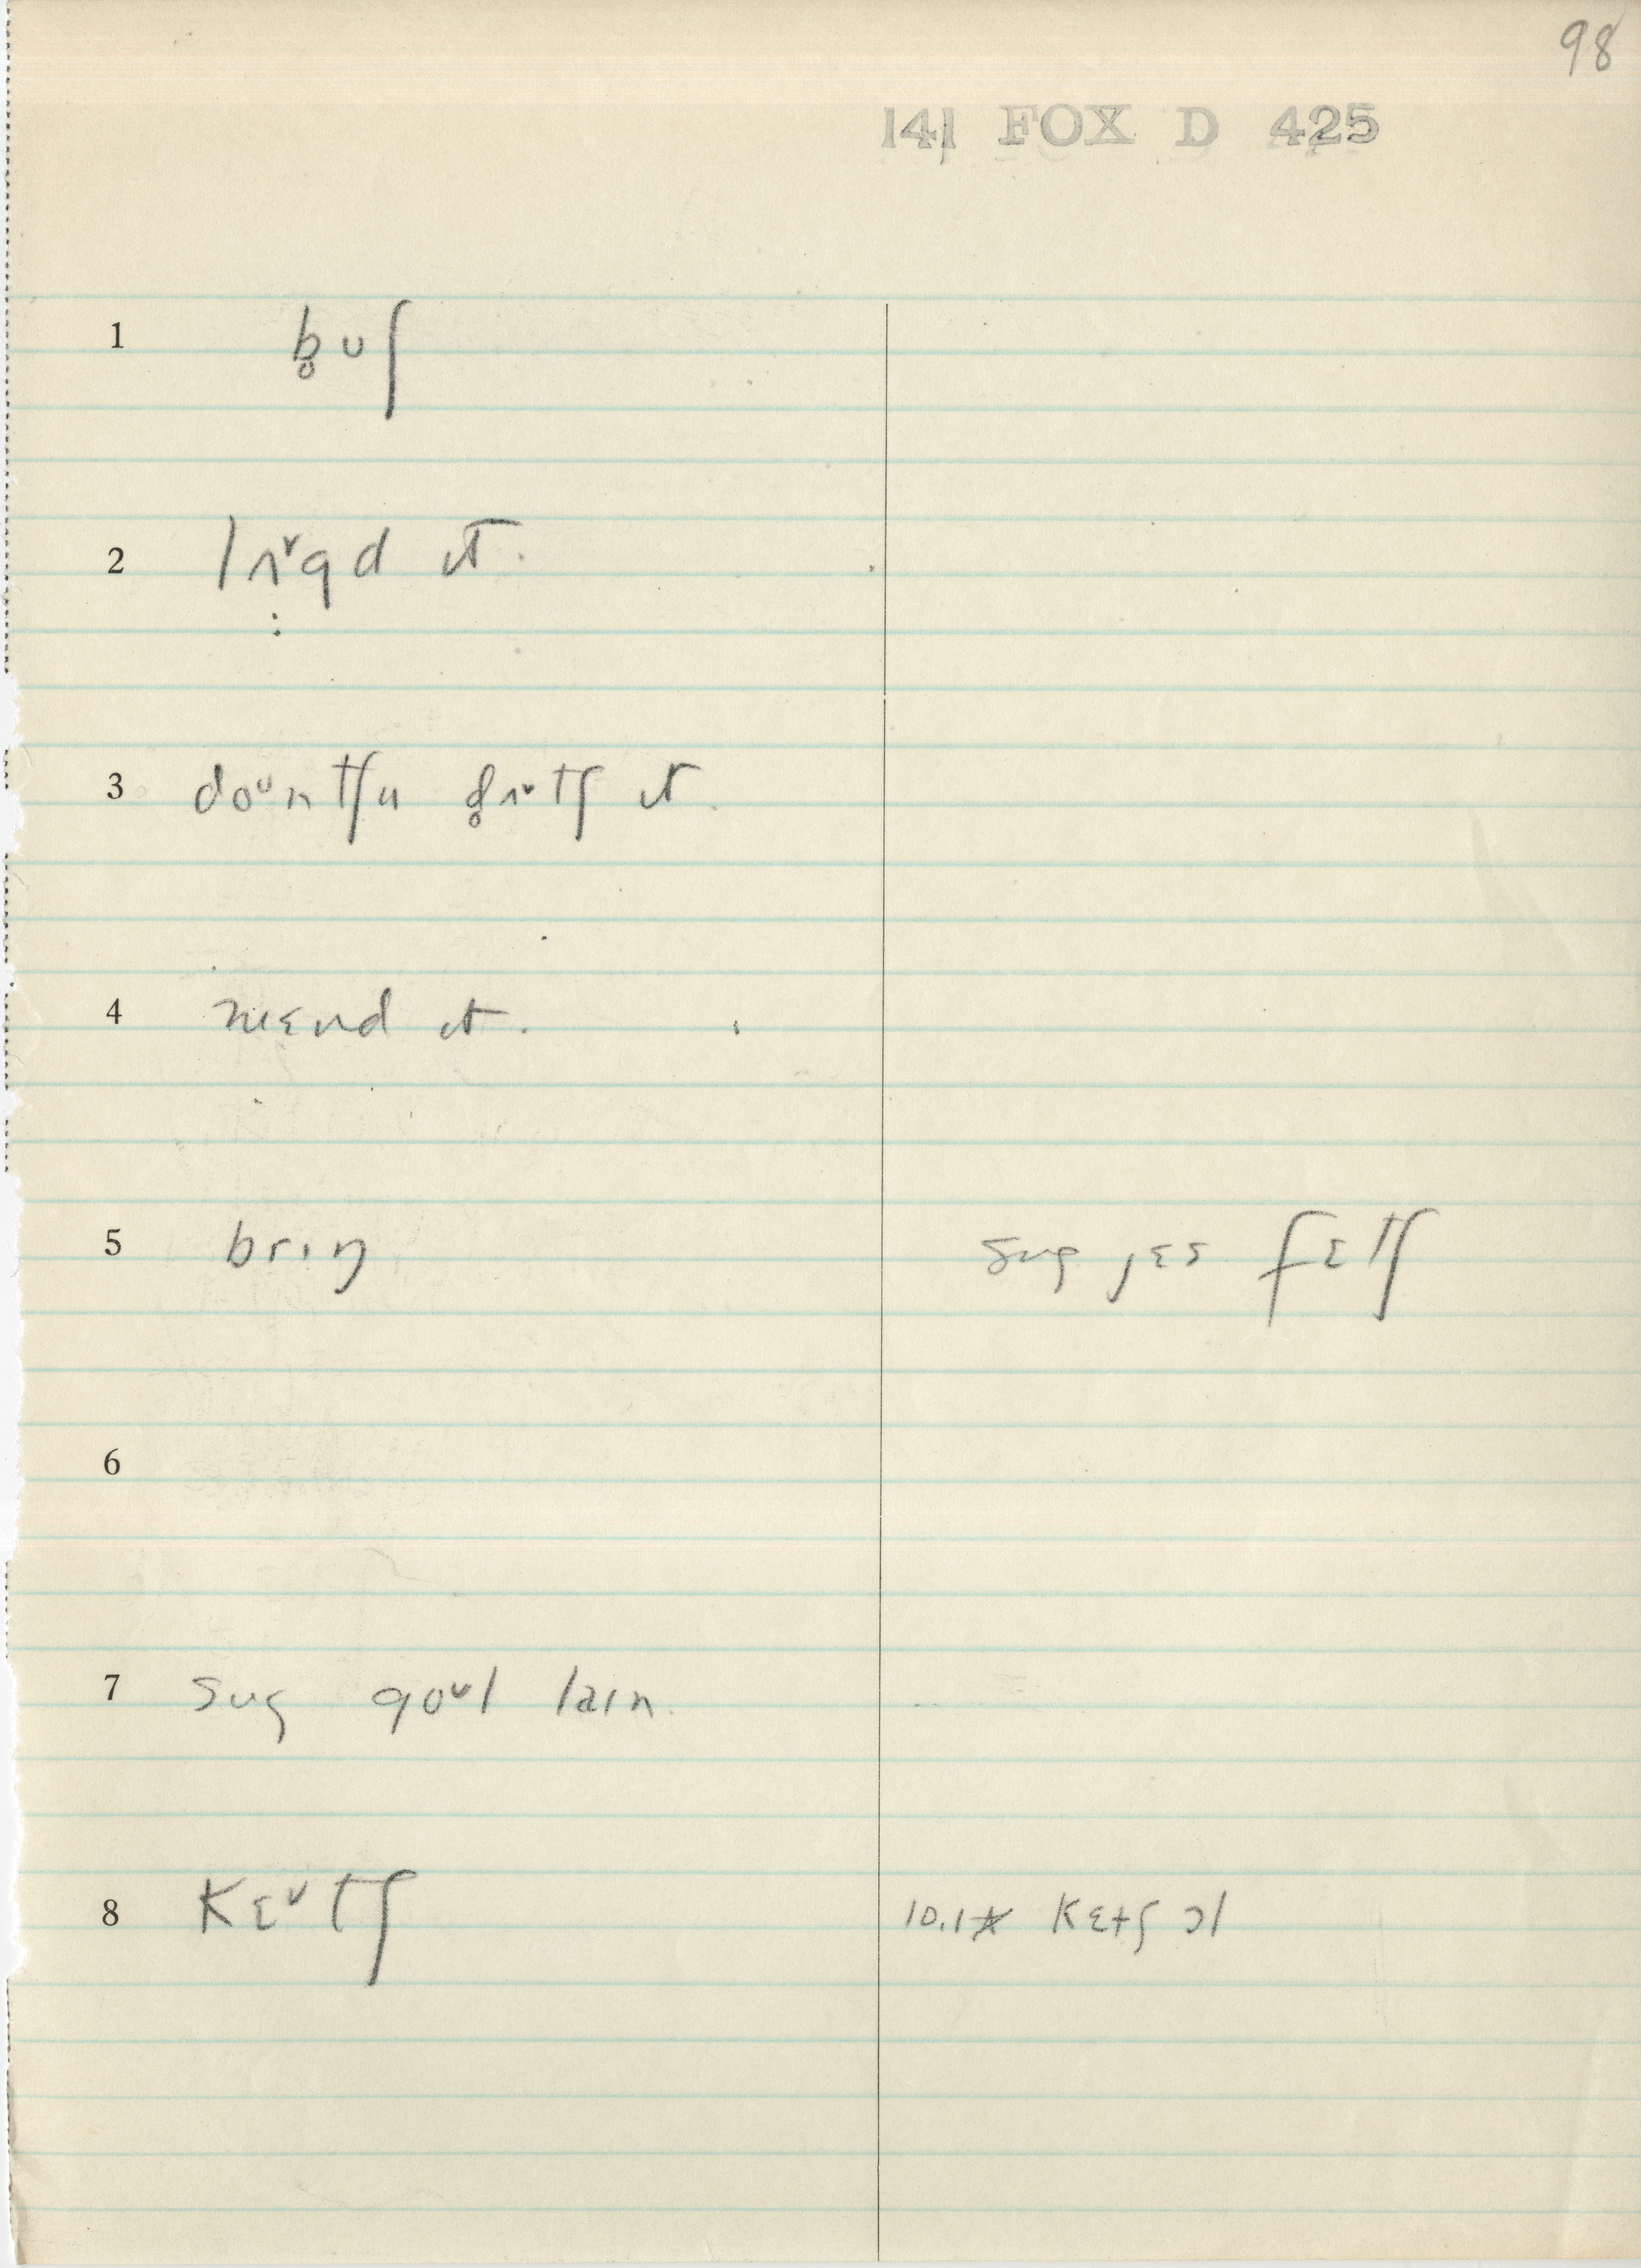 98
141 FOX D 425
1 b̥ʊʃ
2 lɪᵛgd ɪt.
3 doᵘntʃu d̥ɪᵛtʃ ɪt.
4 mɛnd ɪt.
5 brɪŋ sug jɛs fɛtʃ
6
7 sug goᵘl laɪn.
8 kɛᵛtʃ 10.1* kɛtʃ ɔl